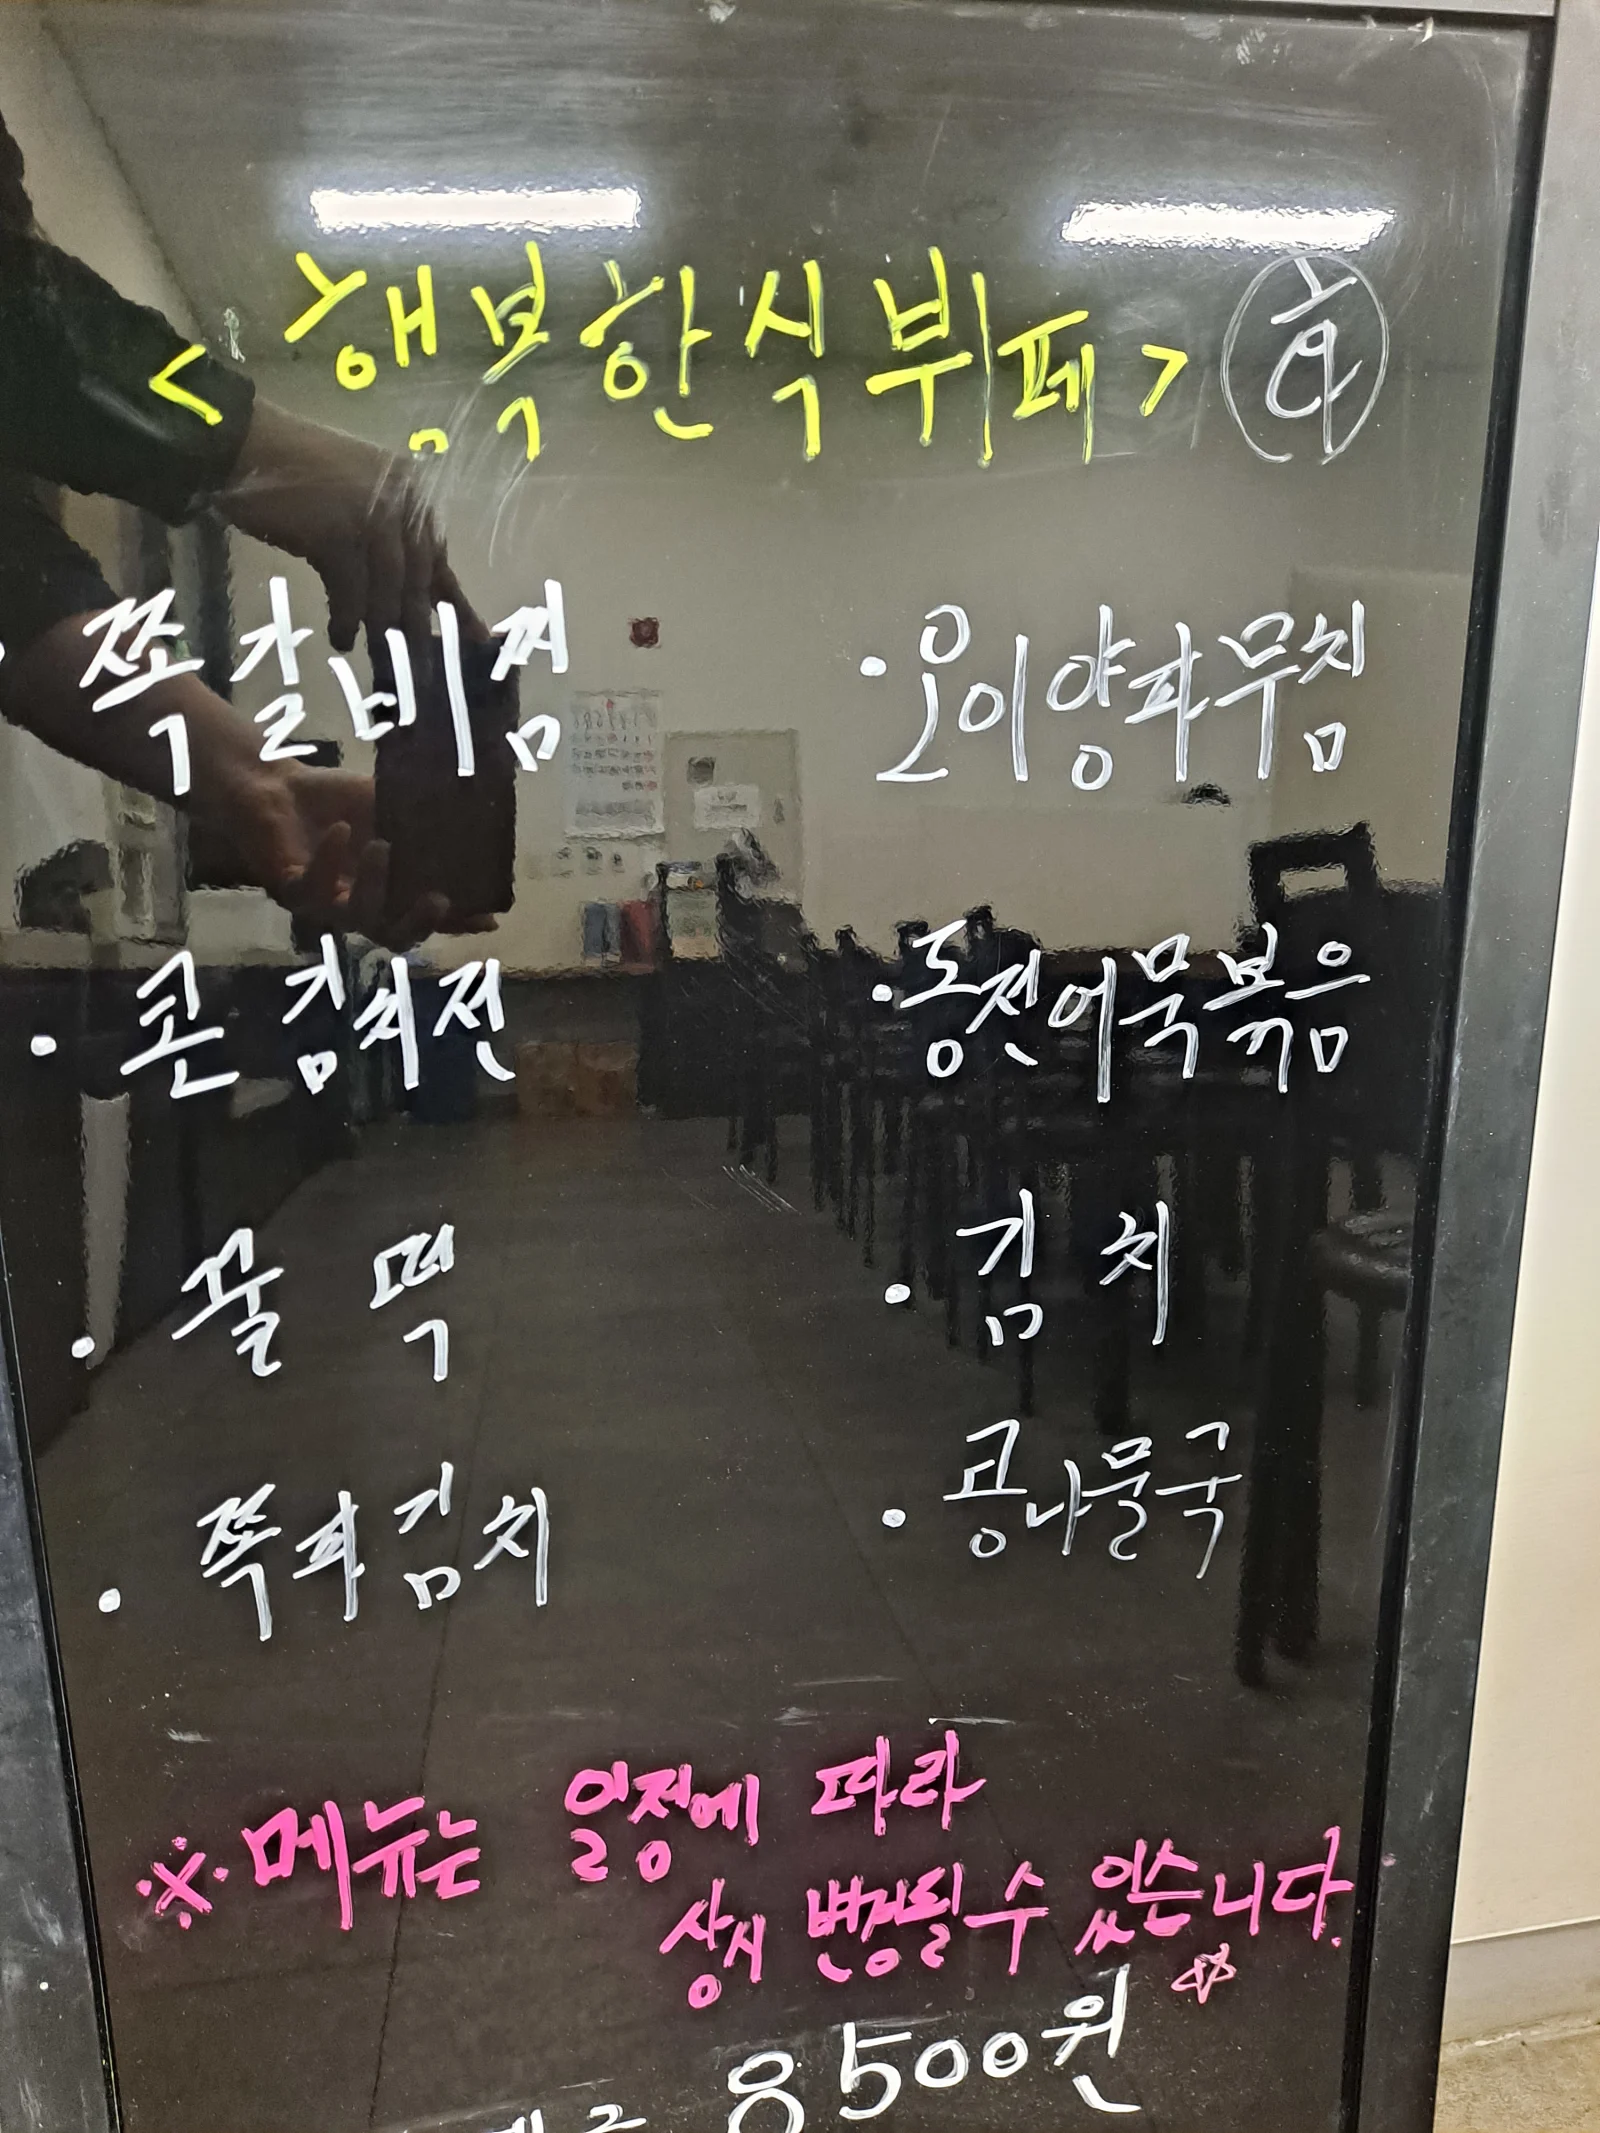 <행복한식뷔페> 화
· 쪽갈비찜
· 오이양파무침
· 콘김치전
· 동전어묵볶음
· 꿀떡
· 김치
· 쪽파김치
· 콩나물국
※메뉴는 일정에 따라
상시 변경될 수 있습니다.
8500원